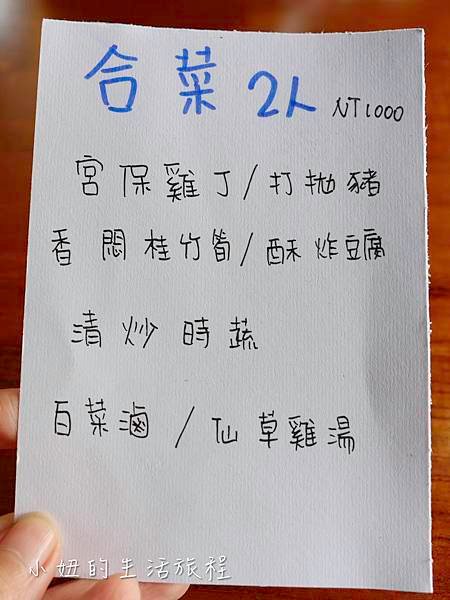 合菜 2人 NT1000
宮保雞丁/打拋豬
香悶桂竹筍/酥炸豆腐
清炒時蔬
白菜滷/仙草雞湯
小妞的生活旅程